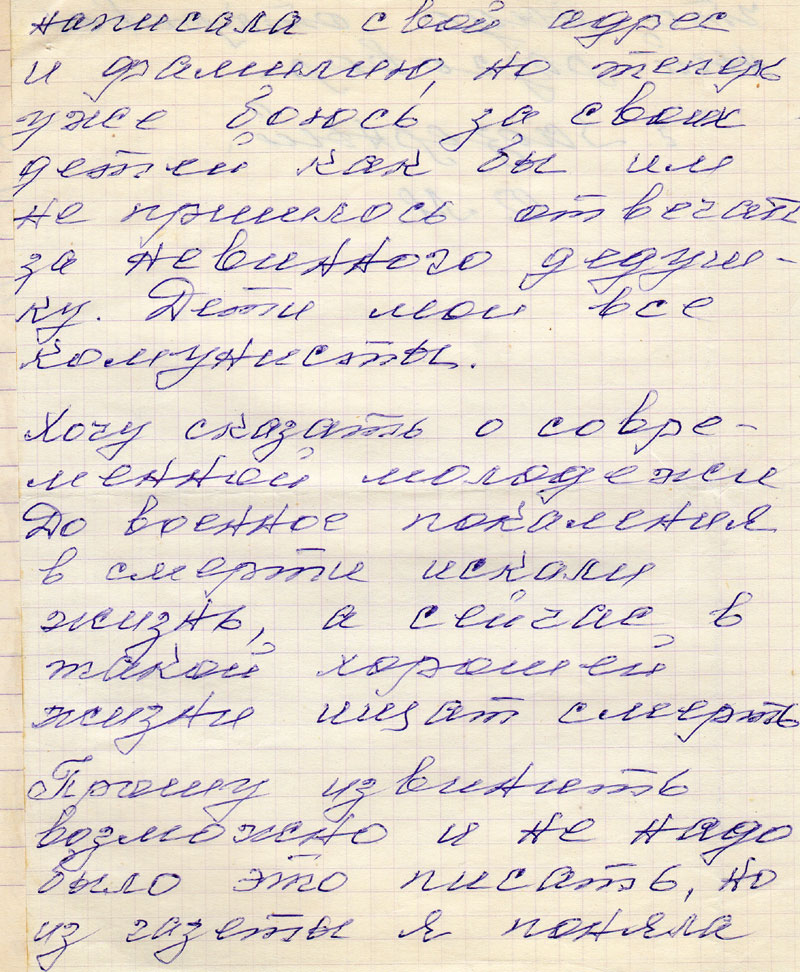 написала свой адрес
и фамилию, но теперь
уже боюсь за своих
детей как бы им
не пришлось отвечать
за невинного дедуш-
ку. Дети мои все
комунисты.
Хочу сказать о совре-
менной молодежи
До военное покаления
в смерти искали
жизнь, а сейчас в
такой хорошей
жизни ищат смерть
Прошу извинить
возможно и не надо
было это писать, но
из газеты я поняла